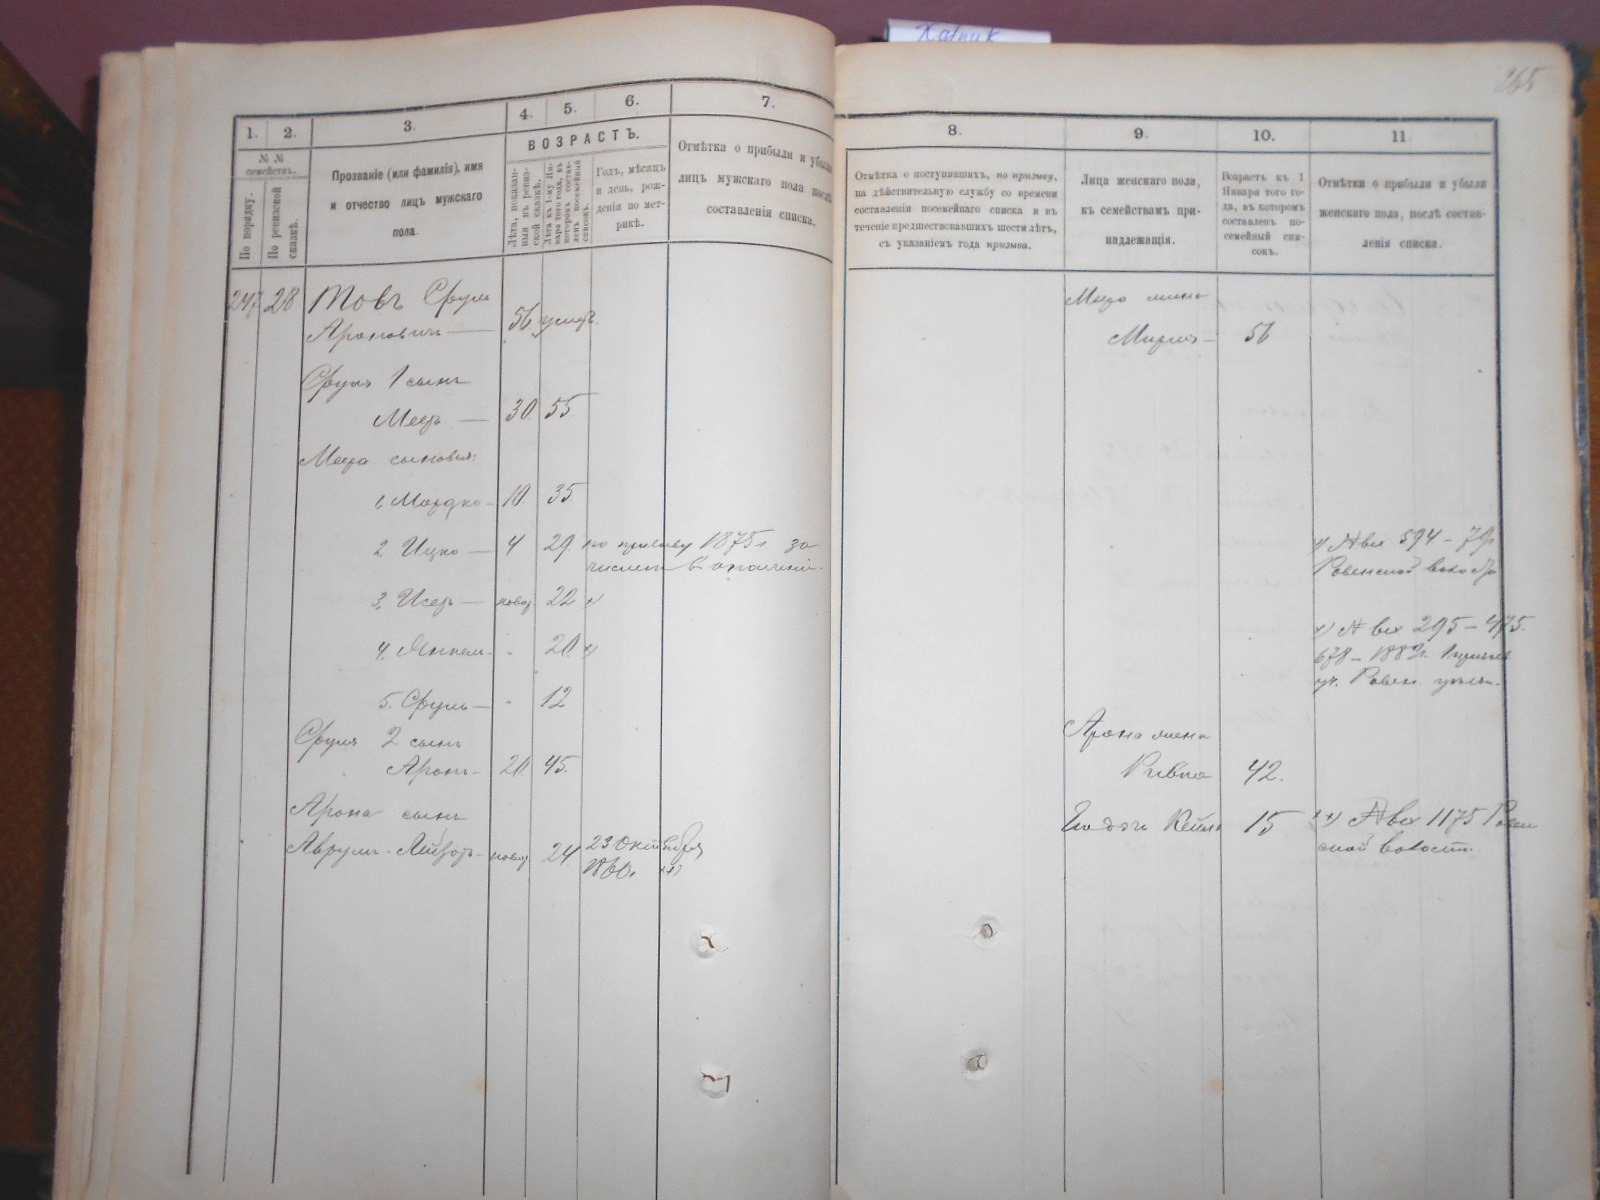 265
1. 2. 3. 4. 5. 6. 7.
№ №
семействъ.
По порядку.
По ревизской
сказкѣ.
Прозваніе (или фамилія), имя
и отчество лицъ мужскаго
пола.
ВОЗРАСТЪ.
Лѣта, показан-
ныя въ ревиз-
ской сказкѣ.
Лѣта къ 1-му Ян-
варя того года, въ
которомъ состав-
ленъ посемейный
списокъ.
Годъ, мѣсяцъ
и день, рож-
денія по мет-
рикѣ.
Отмѣтка о прибыли и убыли
лицъ мужскаго пола послѣ
составленія списка.
8. 9. 10. 11.
Отмѣтка о поступившихъ, по призыву,
на дѣйствительную службу со времени
составленія посемейнаго списка и въ
теченіе предшествовавшихъ шести лѣтъ,
съ указаніемъ года призыва.
Лица женскаго пола,
къ семействамъ при-
надлежащія.
Возрастъ къ 1
Января того го-
да, въ которомъ
составленъ по-
семейный спи-
сокъ.
Отмѣтки о прибыли и убыли
женскаго пола, послѣ состав-
ленія списка.
247 28 Товъ Сруль
Ароновичъ — 56 умеръ
Сруля 1 сынъ
— 30 55
сыновья:
1, Мордко — 10 35
2 Ицко — 4 29 по призыву 1875 г. за
численъ в ополченіе.
3, — новор. 22 х)
4, 20 х)
5. Сруль — 12
Сруля 2 сынъ
Аронъ — 20 45.
Арона сынъ
Аврумъ- — новор 24 23 Октября
1860. хх)
жена
56
х) № вх 594 – 79
Ровенской волости
х) № вх 295 – 475.
678 – 1882.
уч. Ровен.
Арона жена
Ривка 42.
15 хх) № вх 1175 Ровен
ской волости